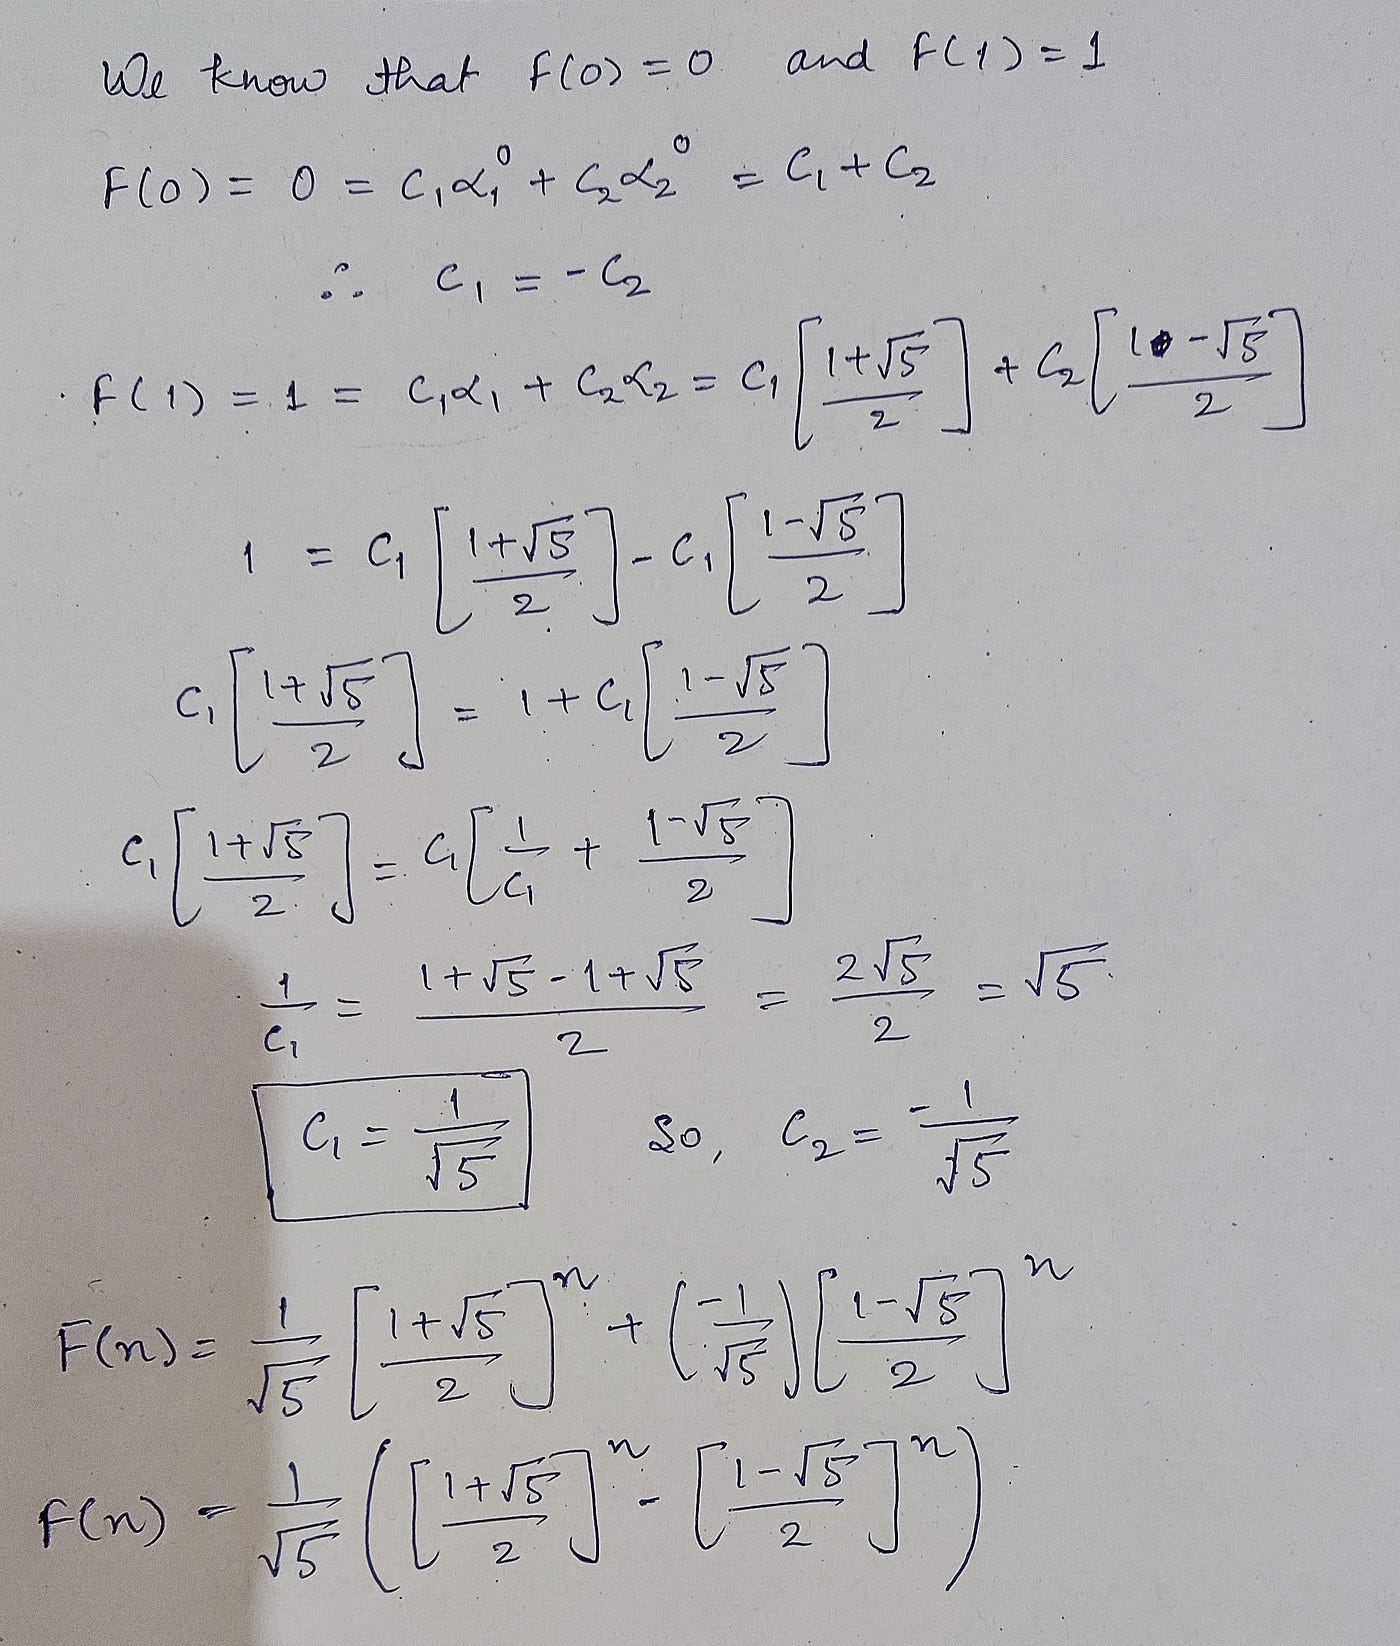 We know that F(0) = 0 and F(1) = 1
F(0) = 0 = C₁α₁⁰ + C₂α₂⁰ = C₁ + C₂
∴ C₁ = -C₂
F(1) = 1 = C₁α₁ + C₂α₂ = C₁[(1+√5)/2] + C₂[(1-√5)/2]
1 = C₁[(1+√5)/2] - C₁[(1-√5)/2]
C₁[(1+√5)/2] = 1 + C₁[(1-√5)/2]
C₁[(1+√5)/2] = C₁[1/C₁ + (1-√5)/2]
1/C₁ = (1+√5-1+√5)/2 = 2√5/2 = √5
C₁ = 1/√5 So, C₂ = -1/√5
F(n) = 1/√5 [(1+√5)/2]ⁿ + (-1/√5)[(1-√5)/2]ⁿ
F(n) = 1/√5 ([(1+√5)/2]ⁿ - [(1-√5)/2]ⁿ)